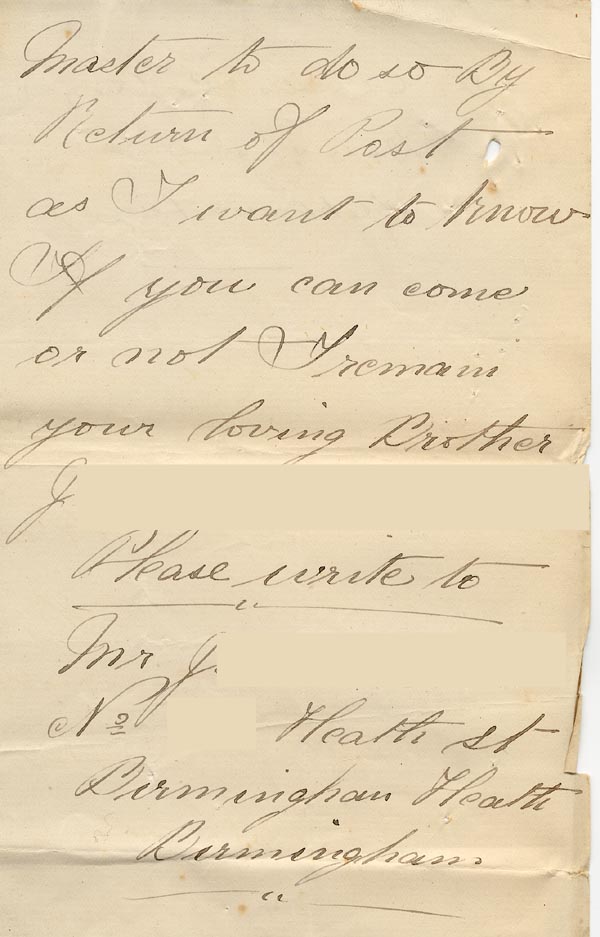 Master to do so By
Return of Post
as I want to know
If you can come
or not I remain
your loving Brother
J
Please write to
Mr J.
No Heath st
Birmingham Heath
Birmingham